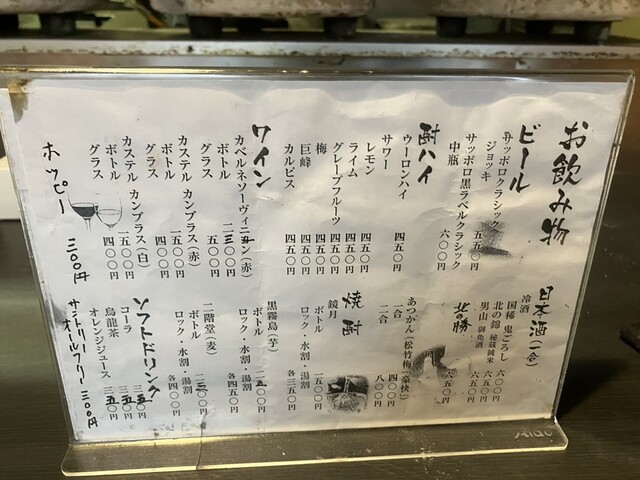 お飲み物
ビール
サッポロクラシック
ジョッキ 五五〇円
サッポロ黒ラベルクラシック
中瓶 六〇〇円
酎ハイ
ウーロンハイ 四五〇円
サワー
レモン 四五〇円
ライム 四五〇円
グレープフルーツ 四五〇円
梅 四五〇円
巨峰 四五〇円
カルピス 四五〇円
ワイン
カベルネソーヴィニヨン(赤)
ボトル 二三〇〇円
グラス 五〇〇円
カステル カンブラス(赤)
ボトル 一五〇〇円
グラス 四〇〇円
カステル カンブラス(白)
ボトル 一五〇〇円
グラス 四〇〇円
ホッピー 三〇〇円
日本酒(一合)
冷酒
国稀 鬼ごろし 六〇〇円
北の錦 秘蔵純米 六五〇円
男山 御免酒 六五〇円
北の勝 五〇円
あつかん(松竹梅 豪快)
一合 四〇〇円
二合 八〇〇円
焼酎
鏡月
ボトル 一五〇〇円
ロック・水割・湯割 各三五〇円
黒霧島(芋)
ボトル 二五〇〇円
ロック・水割・湯割 各四五〇円
二階堂(麦)
ボトル 二三〇〇円
ロック・水割・湯割 各四〇〇円
ソフトドリンク
コーラ 三五〇円
烏龍茶 三五〇円
オレンジジュース 三五〇円
サントリー
オールフリー 三〇〇円